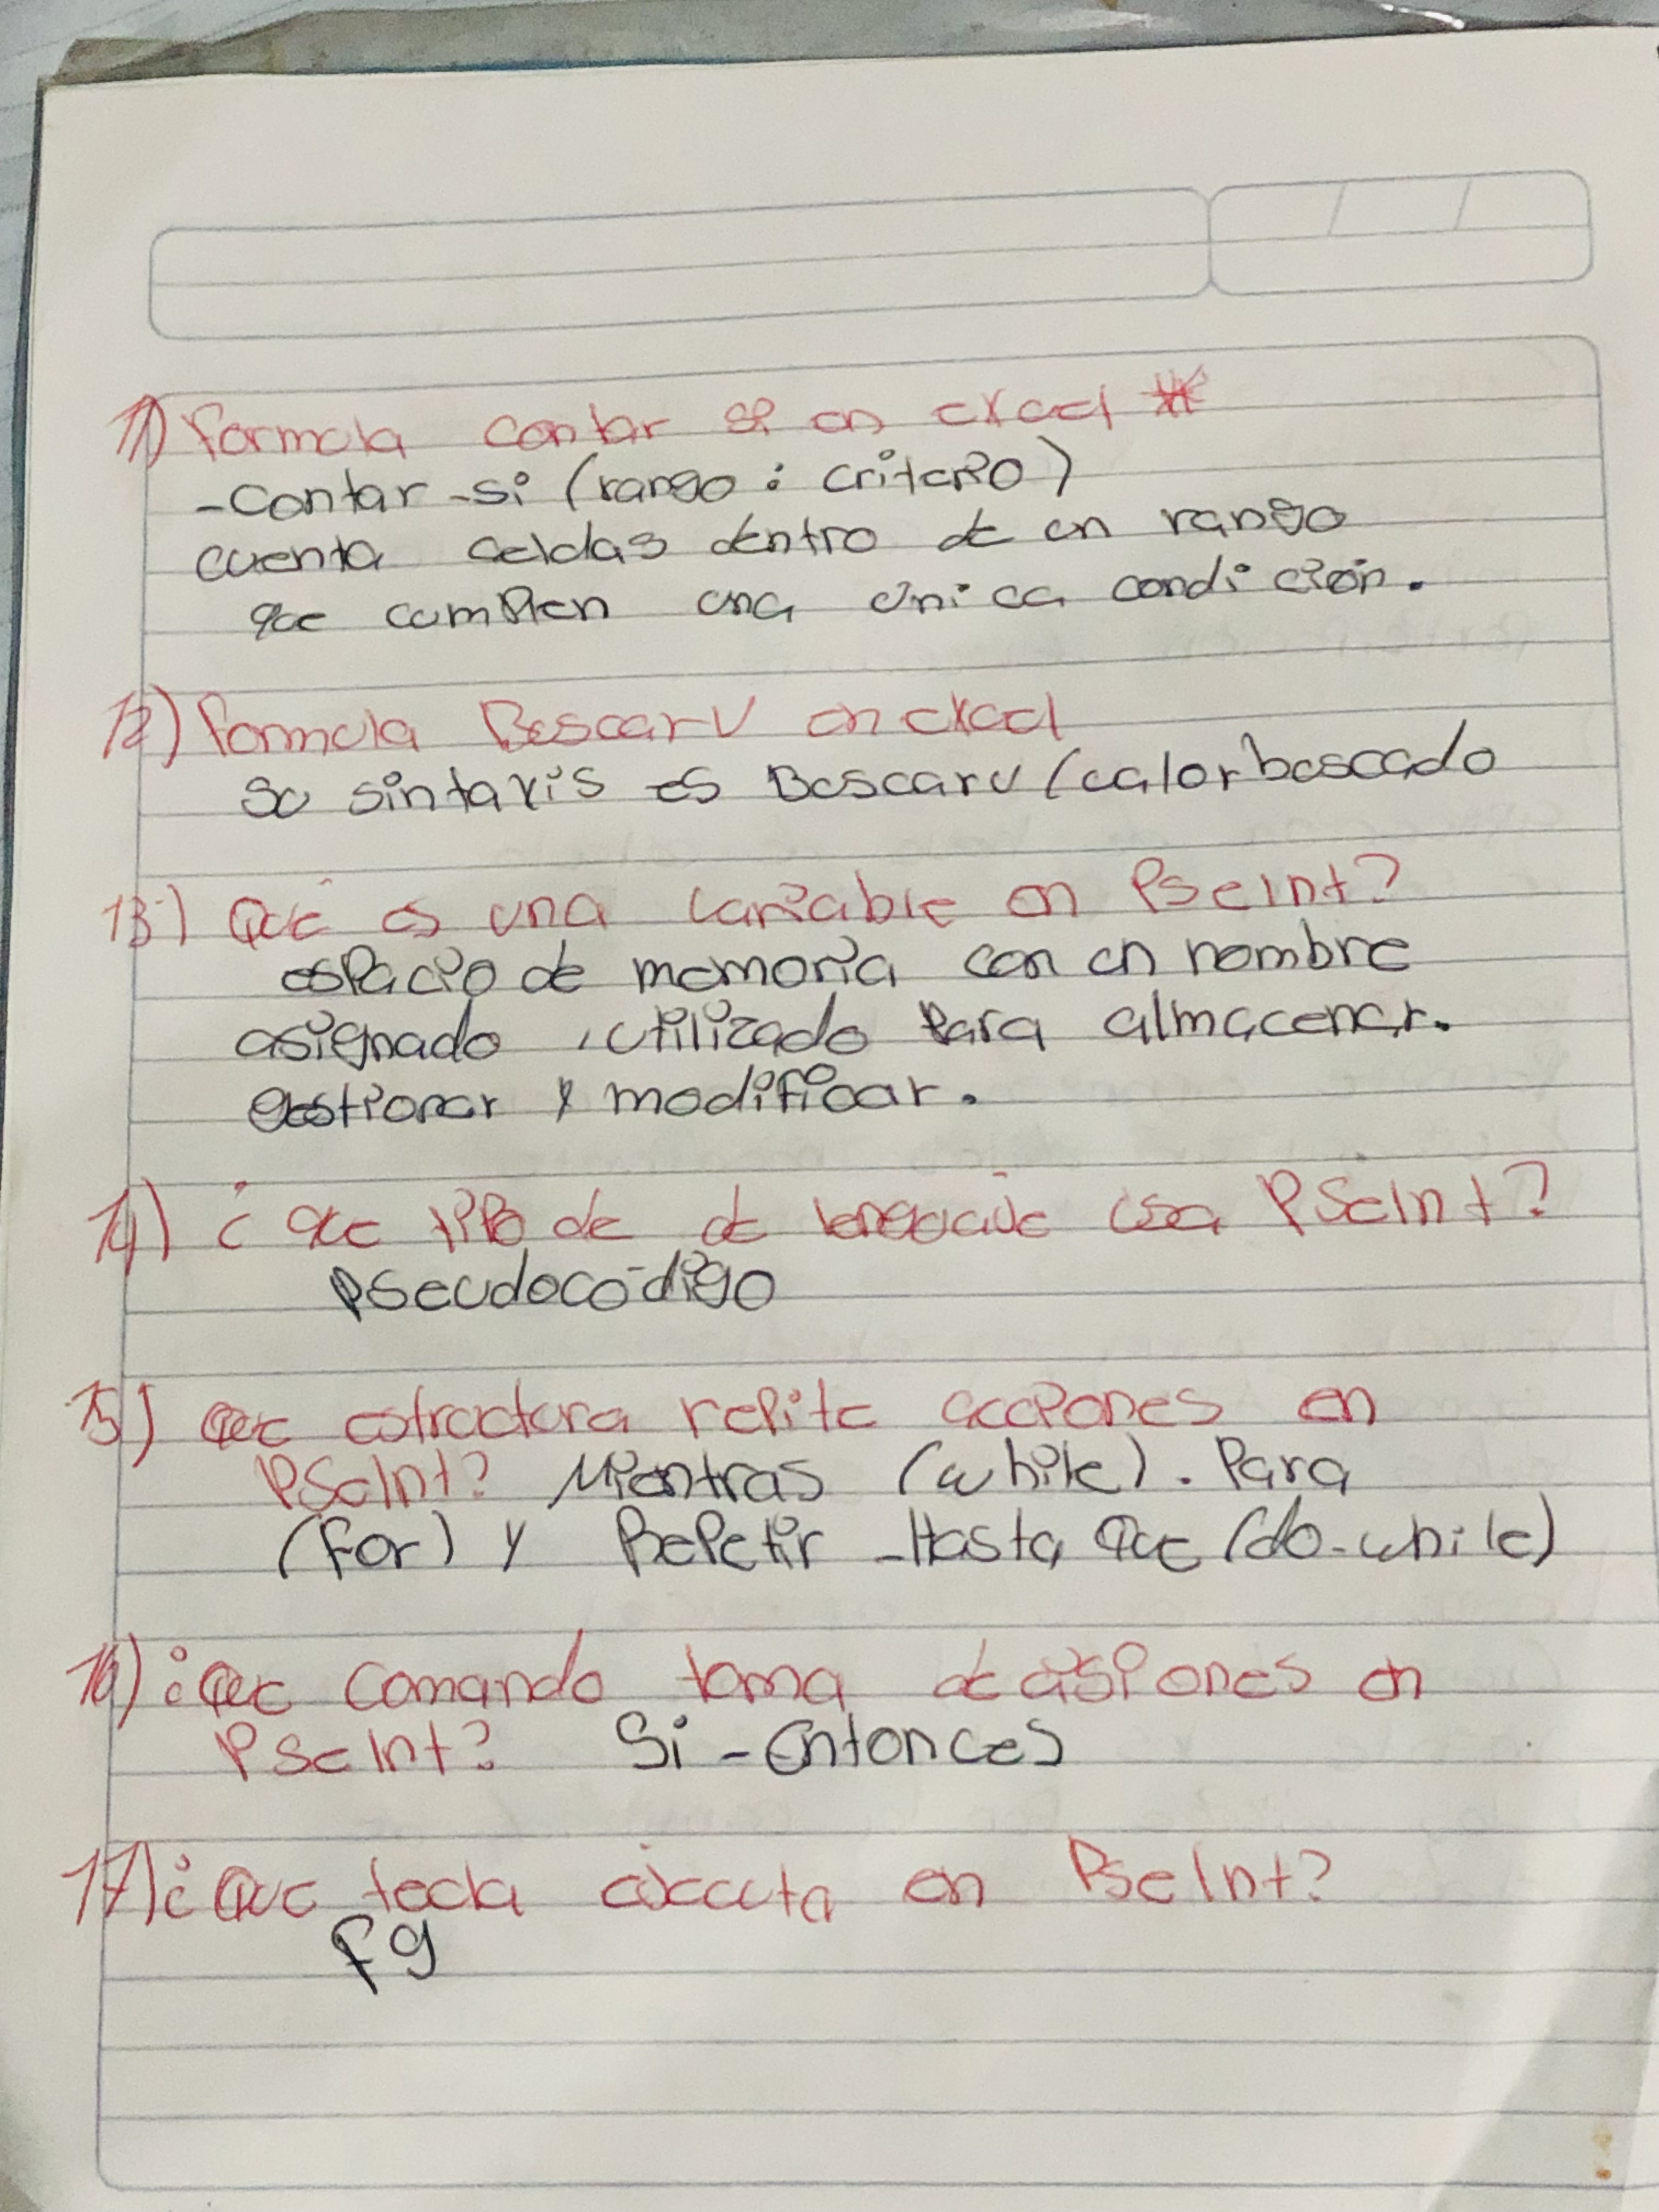 11) Formula contar si en excel *
-contar-si (rango : criterio)
cuenta celdas dentro de un rango
que cumplen una única condición.
12) Formula BuscarV en excel
Su sintaxis es Buscarv (valorbuscado
13) Qué es una variable en PseInt?
espacio de memoria con un nombre
asignado , utilizado para almacenar.
gestionar y modificar.
14) ¿ que tipo de de lenguaje usa PSeInt?
pseudocódigo
15) que estructura repite acciones en
PSeInt? Mientras (while). Para
(for) y Repetir -Hasta Que (do-while)
16) ¿que comando toma decisiones en
PSeInt? Si - Entonces
17) ¿Que tecla ejecuta en PseInt?
f9